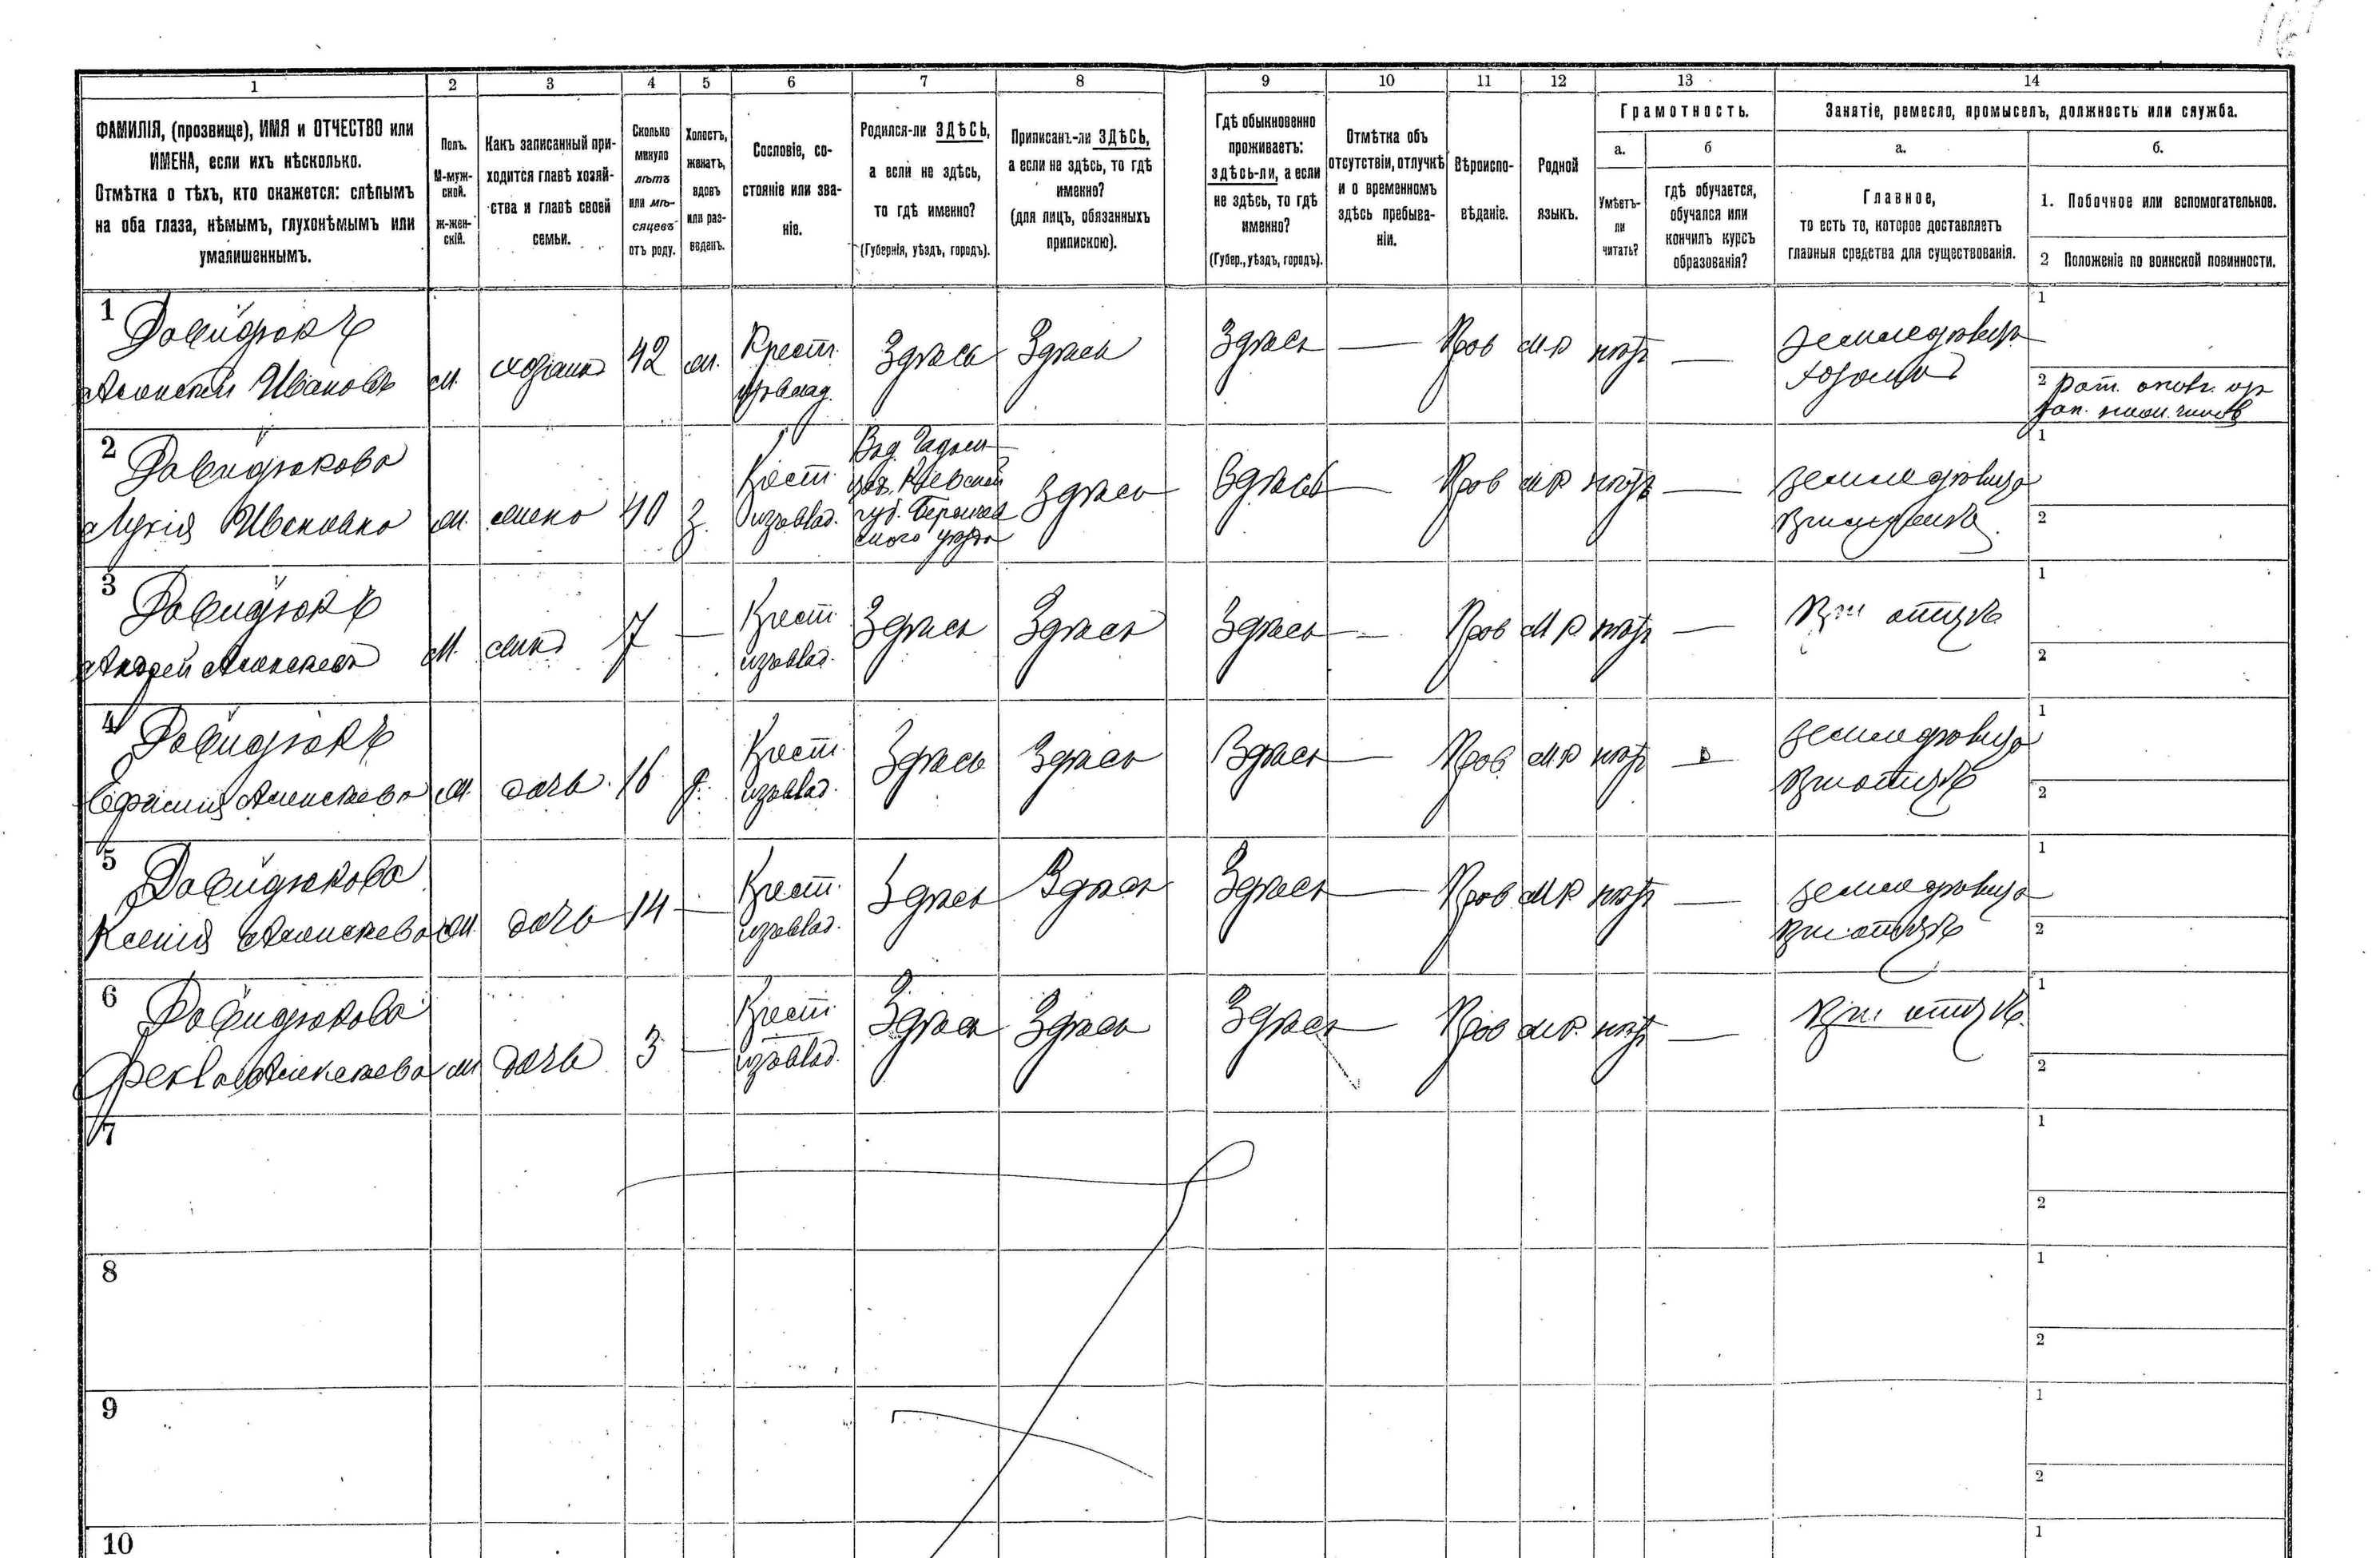 1 2 3 4 5 6 7 8 9 10 11 12 13 14
ФАМИЛІЯ, (прозвище), ИМЯ и ОТЧЕСТВО или
ИМЕНА, если ихъ нѣсколько.
Отмѣтка о тѣхъ, кто окажется: слѣпымъ
на оба глаза, нѣмымъ, глухонѣмымъ или
умалишеннымъ.
Полъ.
М-муж-
ской.
ж-жен-
скій.
Какъ записанный при-
ходится главѣ хозяй-
ства и главѣ своей
семьи.
Сколько
минуло
лѣтъ
или мѣ-
сяцевъ
отъ роду.
Холостъ,
женатъ,
вдовъ
или раз-
веденъ.
Сословіе, со-
стояніе или зва-
ніе.
Родился-ли ЗДѢСЬ,
а если не здѣсь,
то гдѣ именно?
(Губернія, уѣздъ, городъ).
Приписанъ-ли ЗДѢСЬ,
а если не здѣсь, то гдѣ
именно?
(для лицъ, обязанныхъ
припискою).
Гдѣ обыкновенно
проживаетъ:
здѣсь-ли, а если
не здѣсь, то гдѣ
именно?
(Губер., уѣздъ, городъ).
Отмѣтка объ
отсутствіи, отлучкѣ
и о временномъ
здѣсь пребыва-
ніи.
Вѣроиспо-
вѣданіе.
Родной
языкъ.
Грамотность.
а.
Умѣетъ-
ли
читать?
б
гдѣ обучается,
обучался или
кончилъ курсъ
образованія?
Занятіе, ремесло, промыселъ, должность или служба.
а.
Главное,
то есть то, которое доставляетъ
главныя средства для существованія.
б.
1. Побочное или вспомогательное.
2 Положеніе по воинской повинности.
1
Давидюкъ
Алексѣй Ивановъ
м.
хозяинъ
42
Крест.
Здѣсь
Здѣсь
Здѣсь —
Прав
мр
нѣтъ —
земледѣлецъ
хозяинъ
1
2
2
Давидюкова
Лукія Иванова
жена
40
з.
Крест.
изъ влад.
Кіевской
губ.
ского уѣзда
Здѣсь
Здѣсь —
Прав
мр
нѣтъ —
1
2
3
Давидюкъ
Андрей Алексѣевъ
м.
сынъ
7
—
Крест.
изъ влад.
Здѣсь
Здѣсь
Здѣсь —
Прав
мр
нѣтъ —
При отцѣ
1
2
4
Давидюкъ
Алексѣева
дочь
16
д.
Крест.
изъ влад.
Здѣсь
Здѣсь
Здѣсь —
Прав
мр
нѣтъ —
при отцѣ
1
2
5
Давидюкова
Ксенія Алексѣева
дочь
14
—
Крест.
изъ влад.
Здѣсь
Здѣсь
Здѣсь —
Прав
мр
нѣтъ —
при отцѣ
1
2
6
Давидюкова
Фекла Алексѣева
дочь
3
—
Крест.
изъ влад.
Здѣсь
Здѣсь
Здѣсь —
Прав
мр.
нѣтъ —
При отцѣ.
1
2
7
1
2
8
1
2
9
1
2
10
1